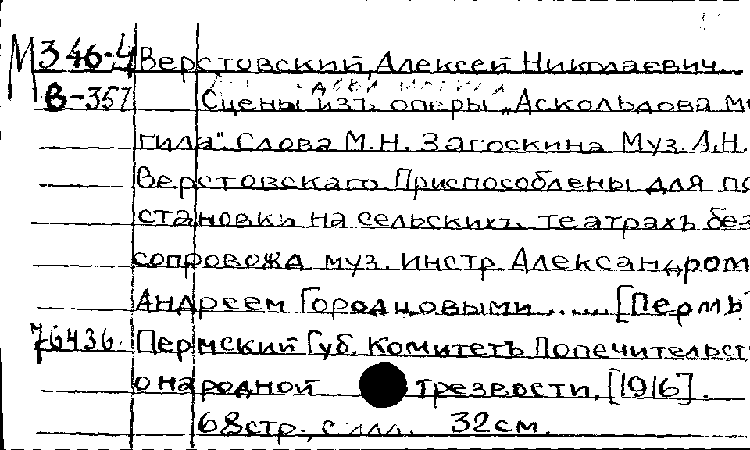 М346-4 Верстовский, Алексей Николаевич
В-357 Сцены изъ оперы „Аскольдова мо
гила". Слова М.Н. Загоскина Муз. А.Н.
Верстовскаго Приспособлены для по
становки на сельскихъ театрахъ без
сопровожд муз. инстр Александром
Андреем Городцовыми...... [Пермь
76436. Пермский Губ. Комитетъ Попечительст
о народной трезвости, [1916].
68стр., с илл. 32см.